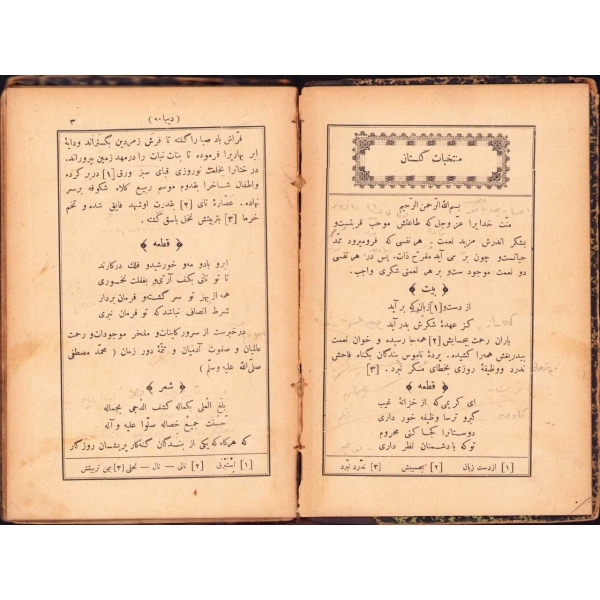 منتخبات گلستان
بسم الله الرحمن الرحیم
منت خدایرا عزّ وجل که طاعتش موجب قربتست و
بشکر اندرش مزید نعمت هر نفسی که فرومیرود ممد
حیاتست و چون بر می آید مفرح ذات. پس در هر نفسی
دو نعمت موجود ست و بر هر نعمتی شکری واجب.
﴿ بیت ﴾
از دست و [۱] زبان که بر آید
کز عهدهٔ شکرش بدر آید
باران رحمت بیحسابش [۲] همه جا رسیده و خوان نعمت
بیدریغش همه را کشیده. پردهٔ ناموس بندگان بگناه فاحش
ندرد و وظیفهٔ روزی بخطای منکر نبرد. [۳]
﴿ قطعه ﴾
ای کریمی که از خزانهٔ غیب
گبر و ترسا وظیفه خور داری
دوستانرا کجا کنی محروم
تو که با دشمنان نظر داری
[۱] از دست زبان [۲] بیحسیبش [۳] ندرد نبرد
( دیباجه ) ۳
فرّاش باد صبا را گفته تا فرش زمردین بگستراند و دایهٔ
ابر بهاریرا فرموده تا بنات نبات را در مهد زمین بپروراند.
درختانرا بخلعت نوروزی قبای سبز ورق [۱] در بر کرده
و اطفال شاخرا بقدوم موسم ربیع کلاه شکوفه بر سر
نهاده. عصارهٔ نای [۲] بقدرت او شهد فایق شده و تخم
خرما [۳] بتربیتش نخل باسق گشته.
﴿ قطعه ﴾
ابر و باد و مه و خورشید و فلك در کارند
تا تو نانی بکف آری و بغفلت نخوری
همه از بهر تو سر گشته و فرمان بردار
شرط انصاف نباشد که تو فرمان نبری
در خبرست از سرور کاینات و مفخر موجودات و رحمت
عالمیان و صفوت آدمیان و تتمّهٔ دور زمان ( محمّد مصطفی
صلّی اللّه علیه وسلم )
﴿ شعر ﴾
بلغ العلی بکماله کشف الدّجی بجماله
حسنت جمیع خصاله صلّوا علیه و آله
که هرگاه که یکی از بندگان گنه کار پریشان روزگار
[۱] استبرق [۲] تاکی — نال — نحلی [۳] بیمن تربیتش